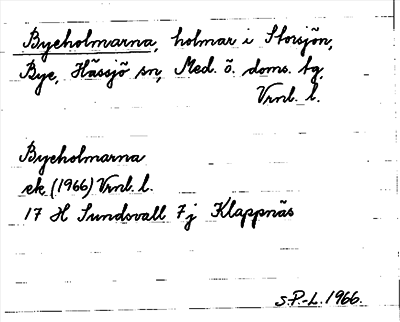 Byeholmarna, holmar i Storsjön,
Bye, Hässjö sn, Med. ö. doms. tg,
Vrnl. l.
Byeholmarna
ek (1966) Vrnl. l.
17 H Sundsvall 7j Klappnäs
S.P.-L. 1966.